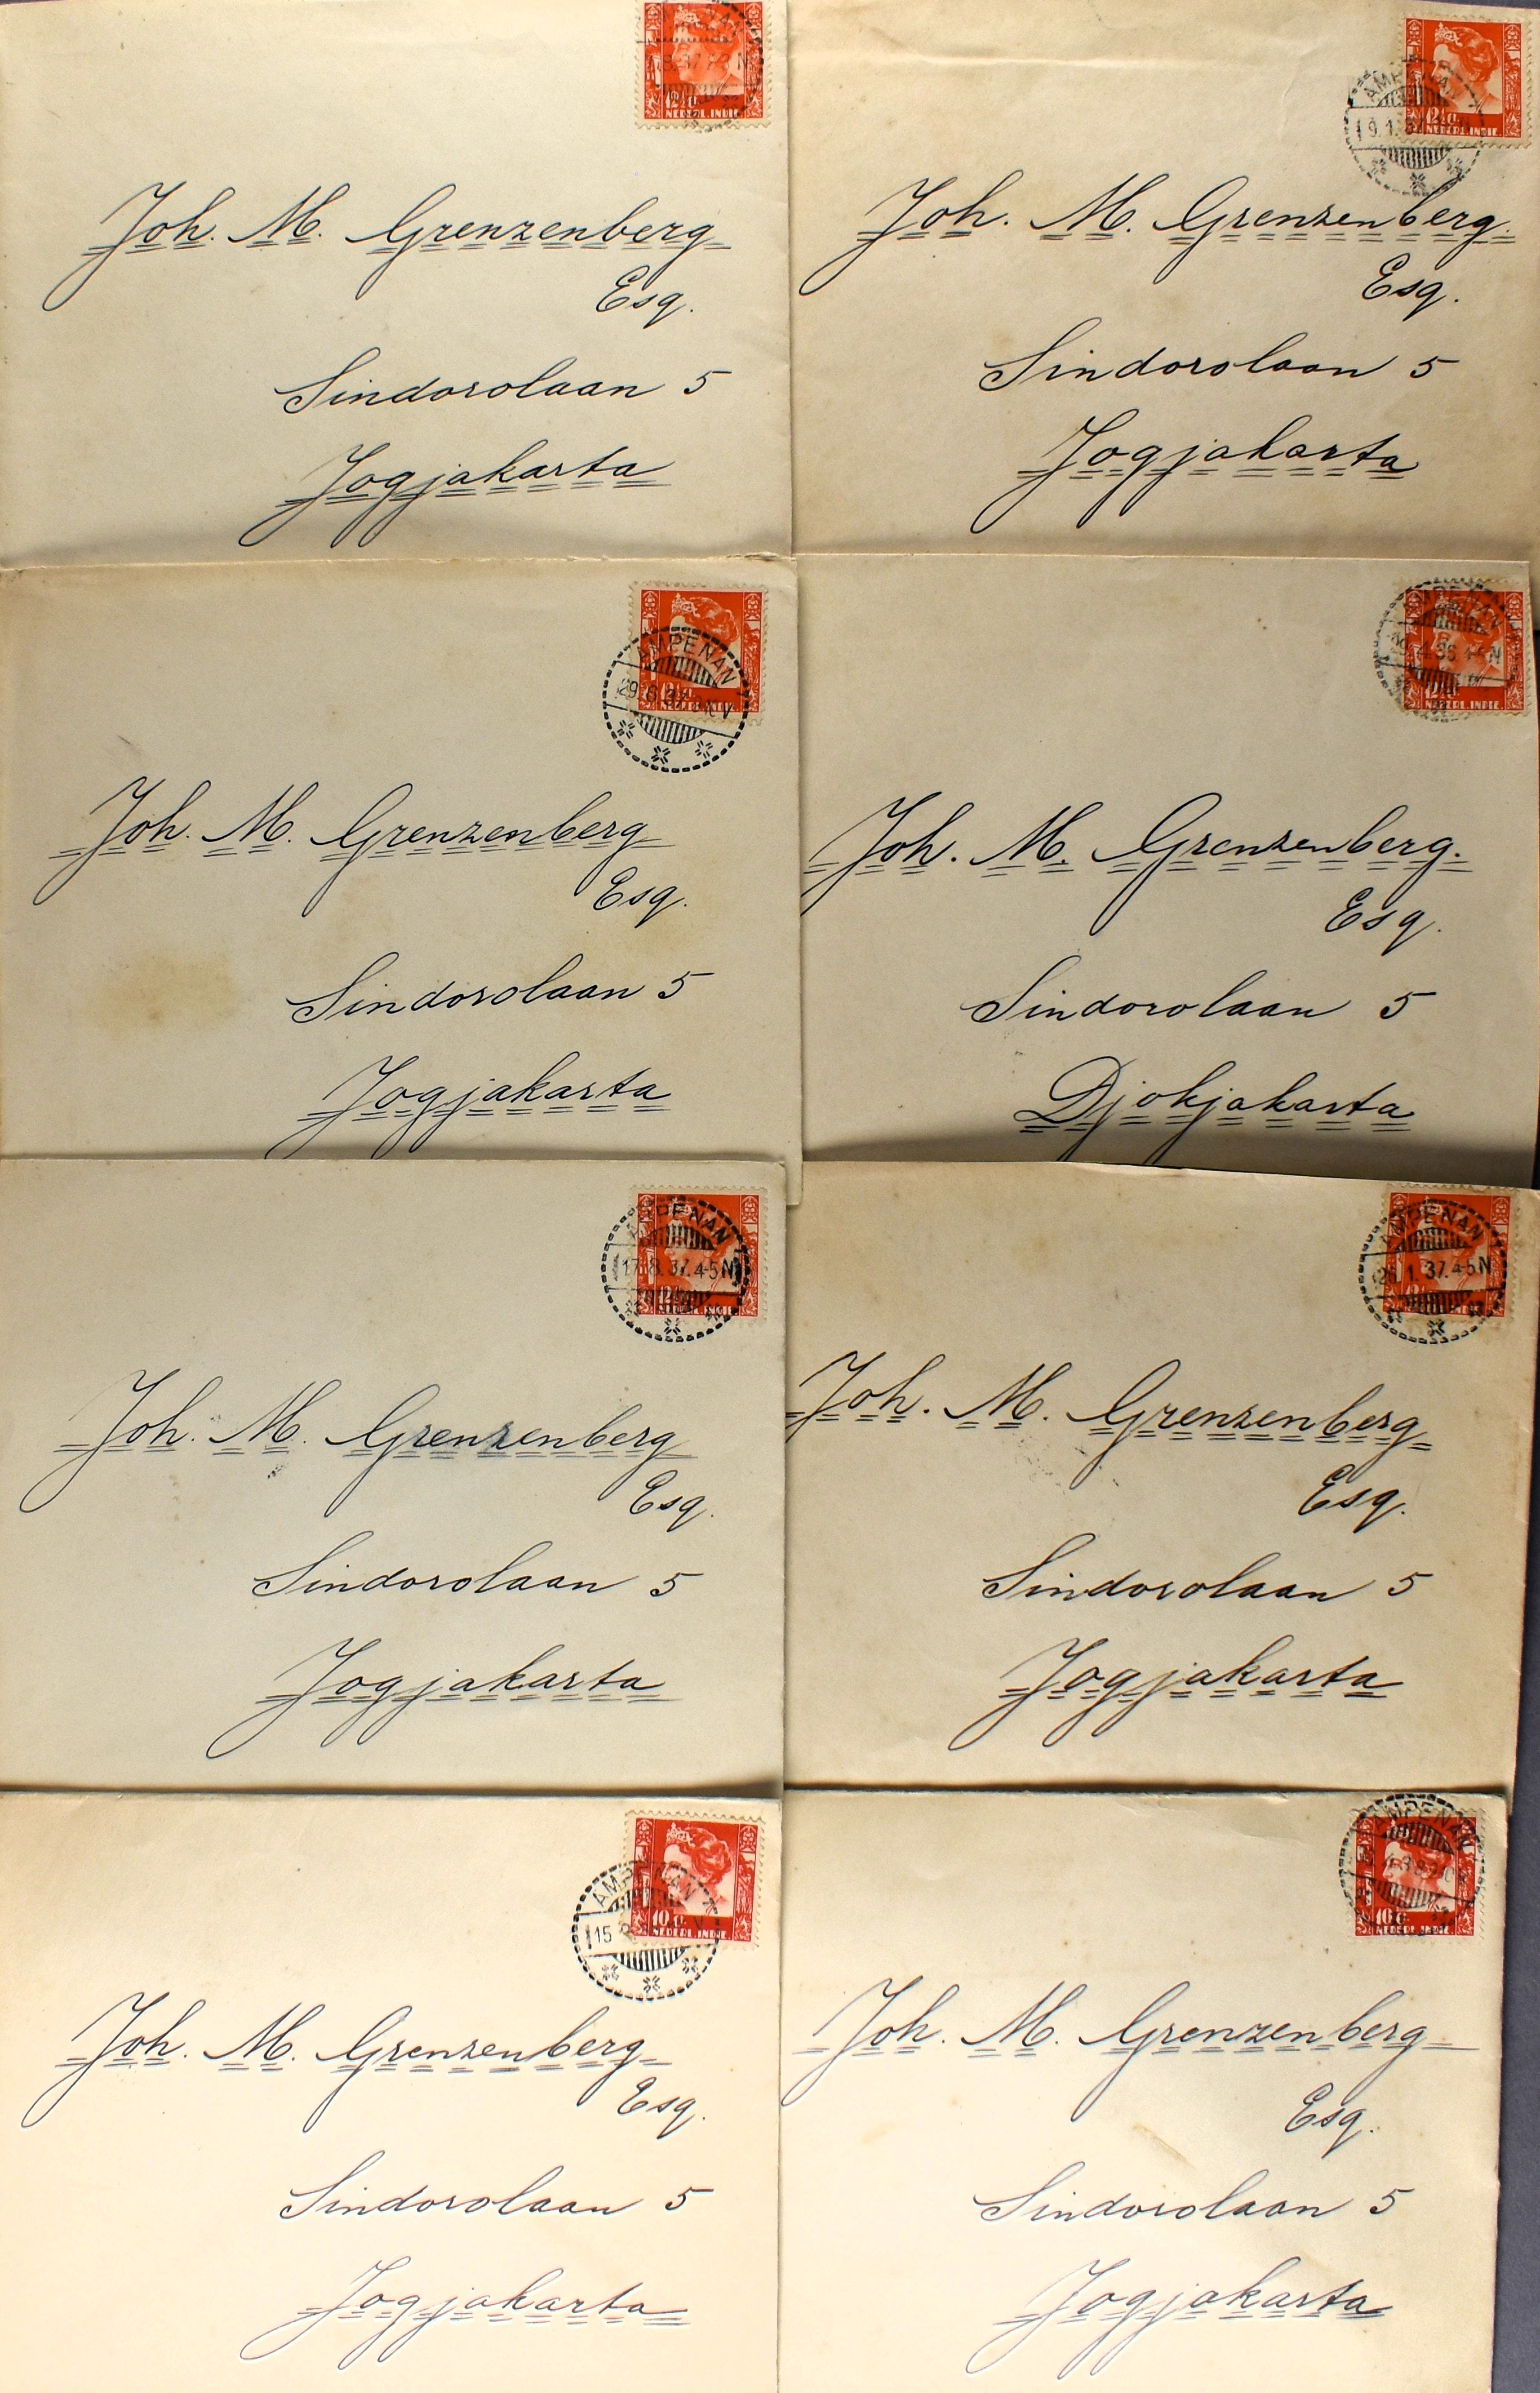 12½ ct
NEDERL. INDIE
Joh. M. Grenzenberg
Esq.
Sindorolaan 5
Jogjakarta
12½ ct
NEDERL. INDIE
Joh. M. Grenzenberg.
Esq.
Sindorolaan 5
Jogjakarta
AMPENAN
29.6.37.
NEDERL. INDIE
Joh. M. Grenzenberg
Esq.
Sindorolaan 5
Jogjakarta
NEDERL. INDIE
Joh. M. Grenzenberg.
Esq.
Sindorolaan 5
Djokjakarta
AMPENAN
17.8.37.4-5N
Joh. M. Grenzenberg
Esq.
Sindorolaan 5
Jogjakarta
AMPENAN
1.37.4-5N
Joh. M. Grenzenberg
Esq.
Sindorolaan 5
Jogjakarta
AMPENAN
15
10 ct
NEDERL. INDIE
Joh. M. Grenzenberg
Esq.
Sindorolaan 5
Jogjakarta
AMPENAN
10 ct
NEDERL. INDIE
Joh. M. Grenzenberg
Esq.
Sindorolaan 5
Jogjakarta